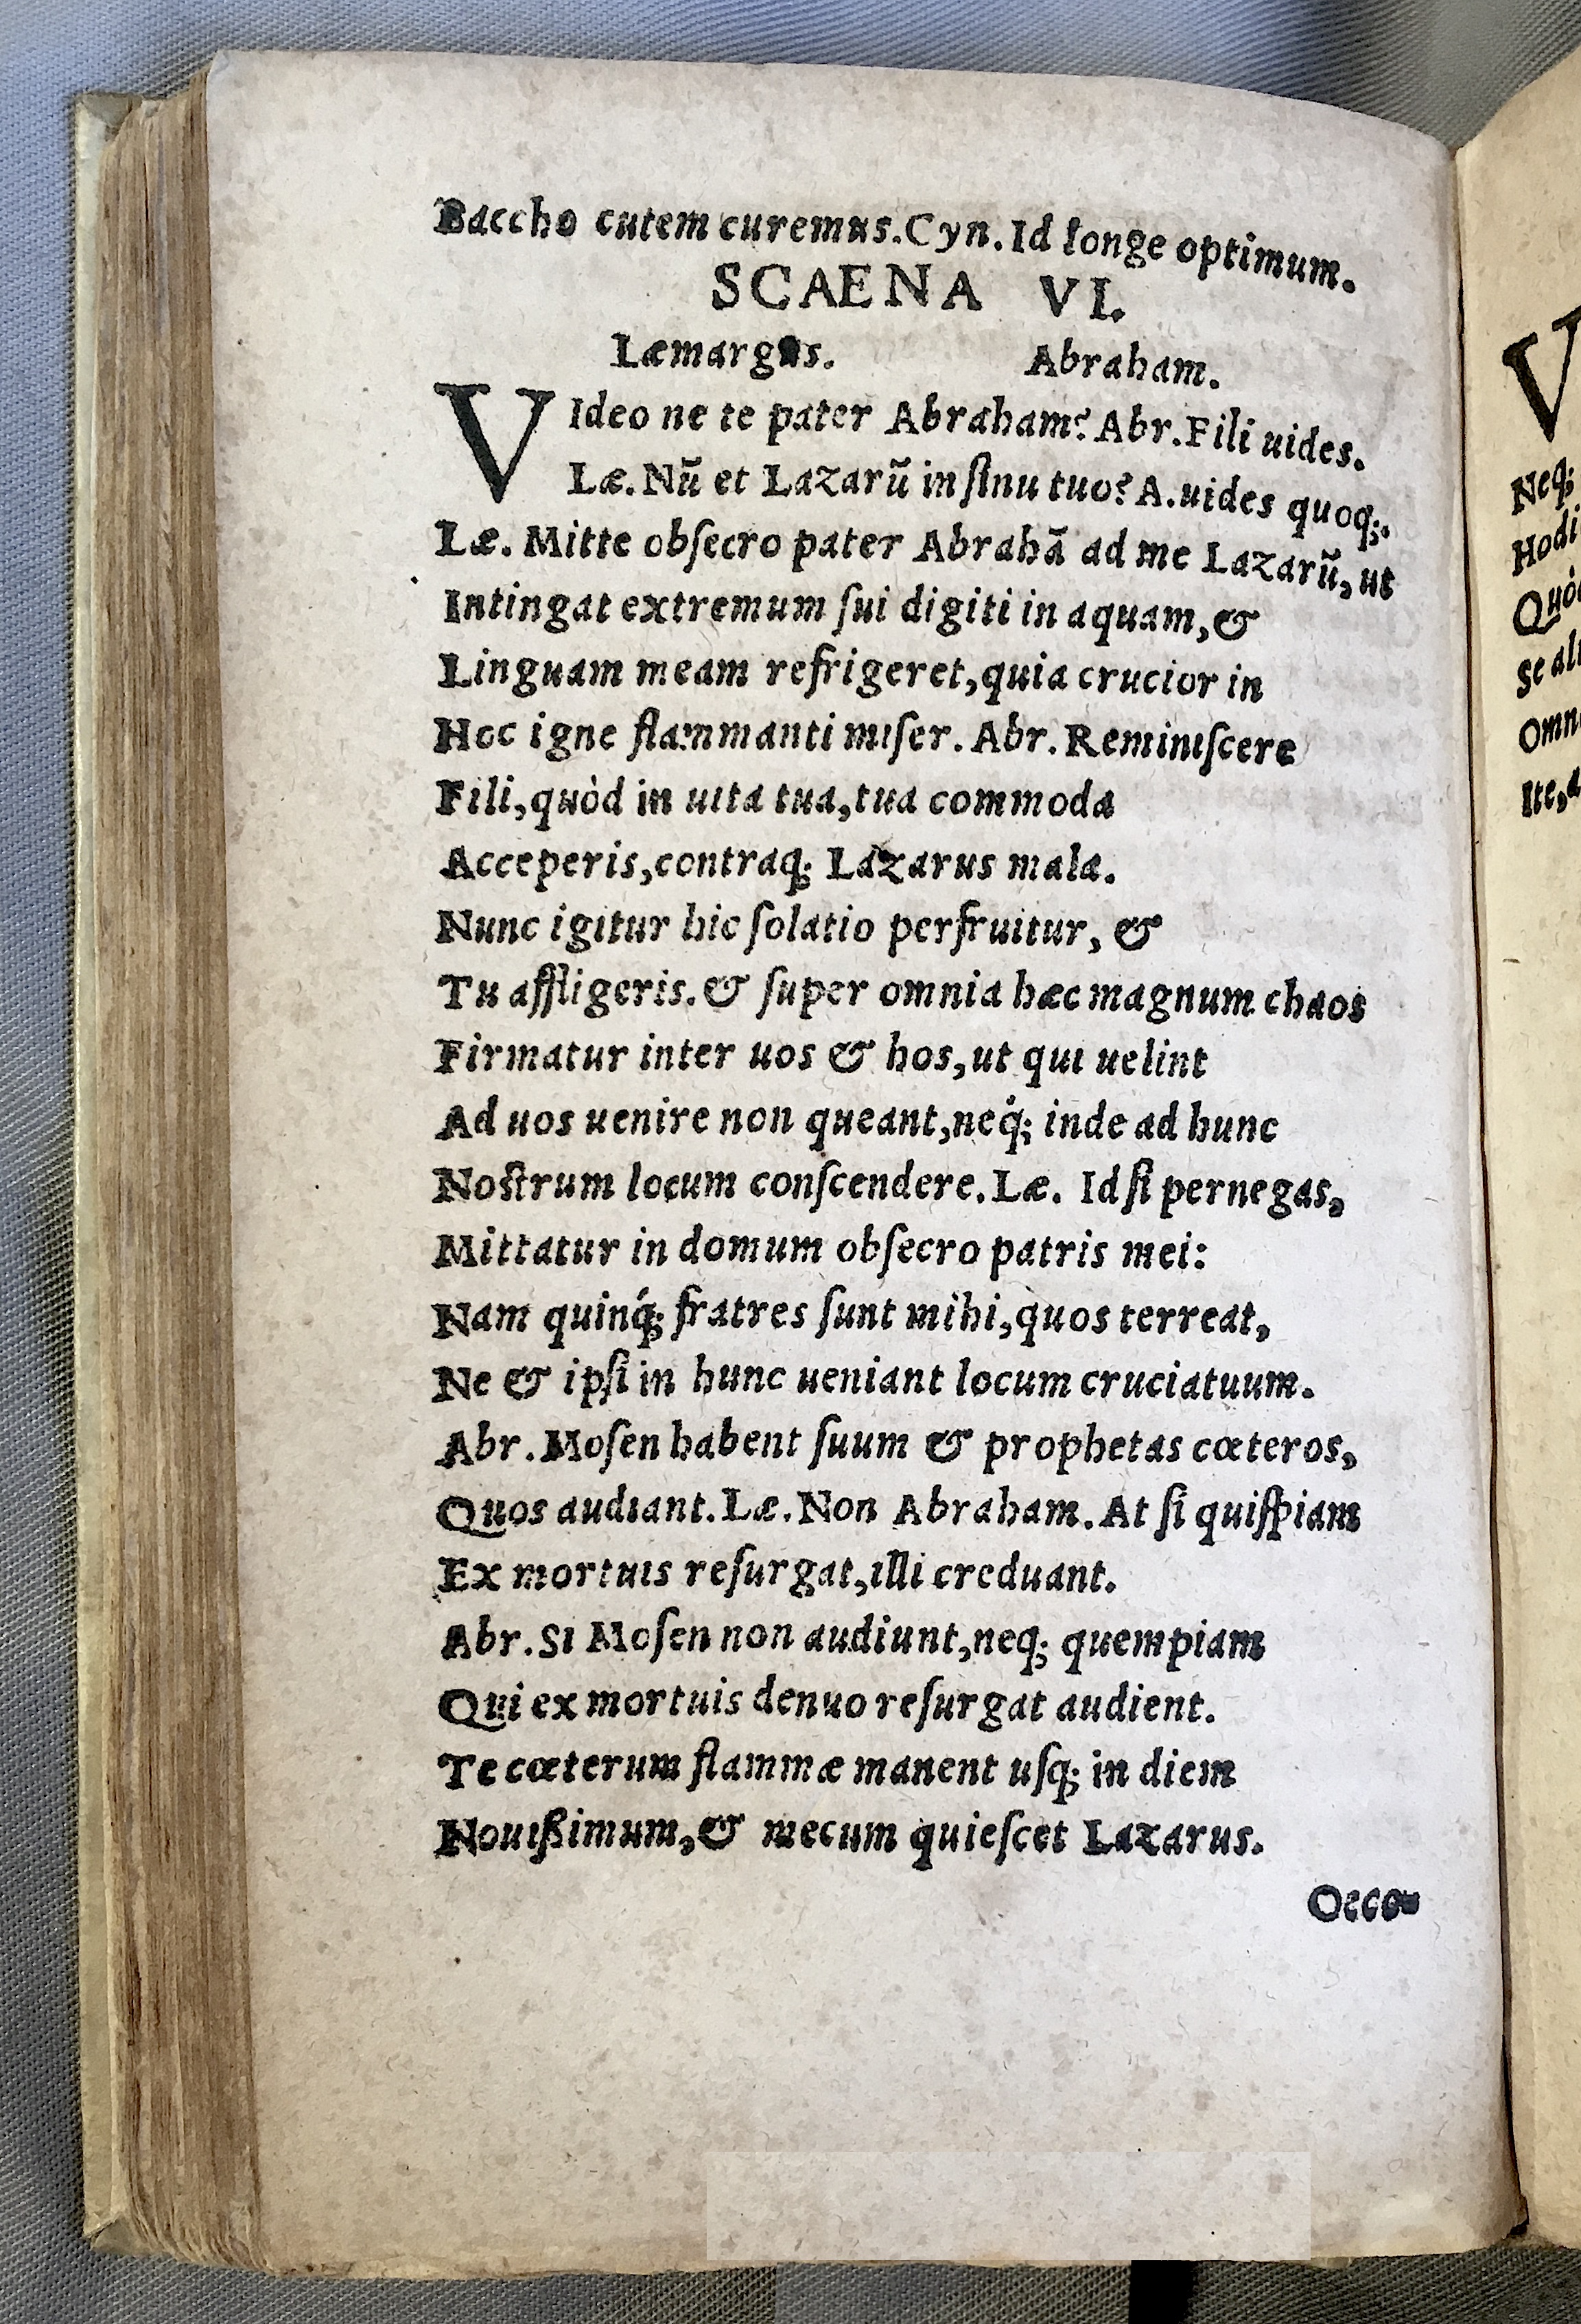 Baccho cutem curemus. Cyn. Id longe optimum.
SCAENA VI.
Læmargus. Abraham.
VIdeo ne te pater Abraham? Abr. Fili uides.
Læ. Nũ et Lazarũ in ſinu tuo? A. uides quoq;.
Læ. Mitte obſecro pater Abrahã ad me Lazarũ, ut
Intingat extremum ſui digiti in aquam, &
Linguam meam refrigeret, quia crucior in
Hoc igne flammanti miſer. Abr. Reminiſcere
Fili, quòd in uita tua, tua commoda
Acceperis, contraq; Lazarus mala.
Nunc igitur hic ſolatio perfruitur, &
Tu affligeris. & ſuper omnia hæc magnum chaos
Firmatur inter uos & hos, ut qui uelint
Ad uos uenire non queant, neq́; inde ad hunc
Noſtrum locum conſcendere. Læ. Id ſi pernegas,
Mittatur in domum obſecro patris mei:
Nam quinq́; fratres ſunt mihi, quos terreat,
Ne & ipſi in hunc ueniant locum cruciatuum.
Abr. Moſen habent ſuum & prophetas cœteros,
Quos audiant. Læ. Non Abraham. At ſi quiſpiam
Ex mortuis reſurgat, illi creduant.
Abr. Si Moſen non audiunt, neq; quempiam
Qui ex mortuis denuo reſurgat audient.
Te cœterum flammæ manent uſq; in diem
Nouißimum, & mecum quieſcet Lazarus.
V
Neq;
Hodi
Quò
Se ali
Omn
Ite, a